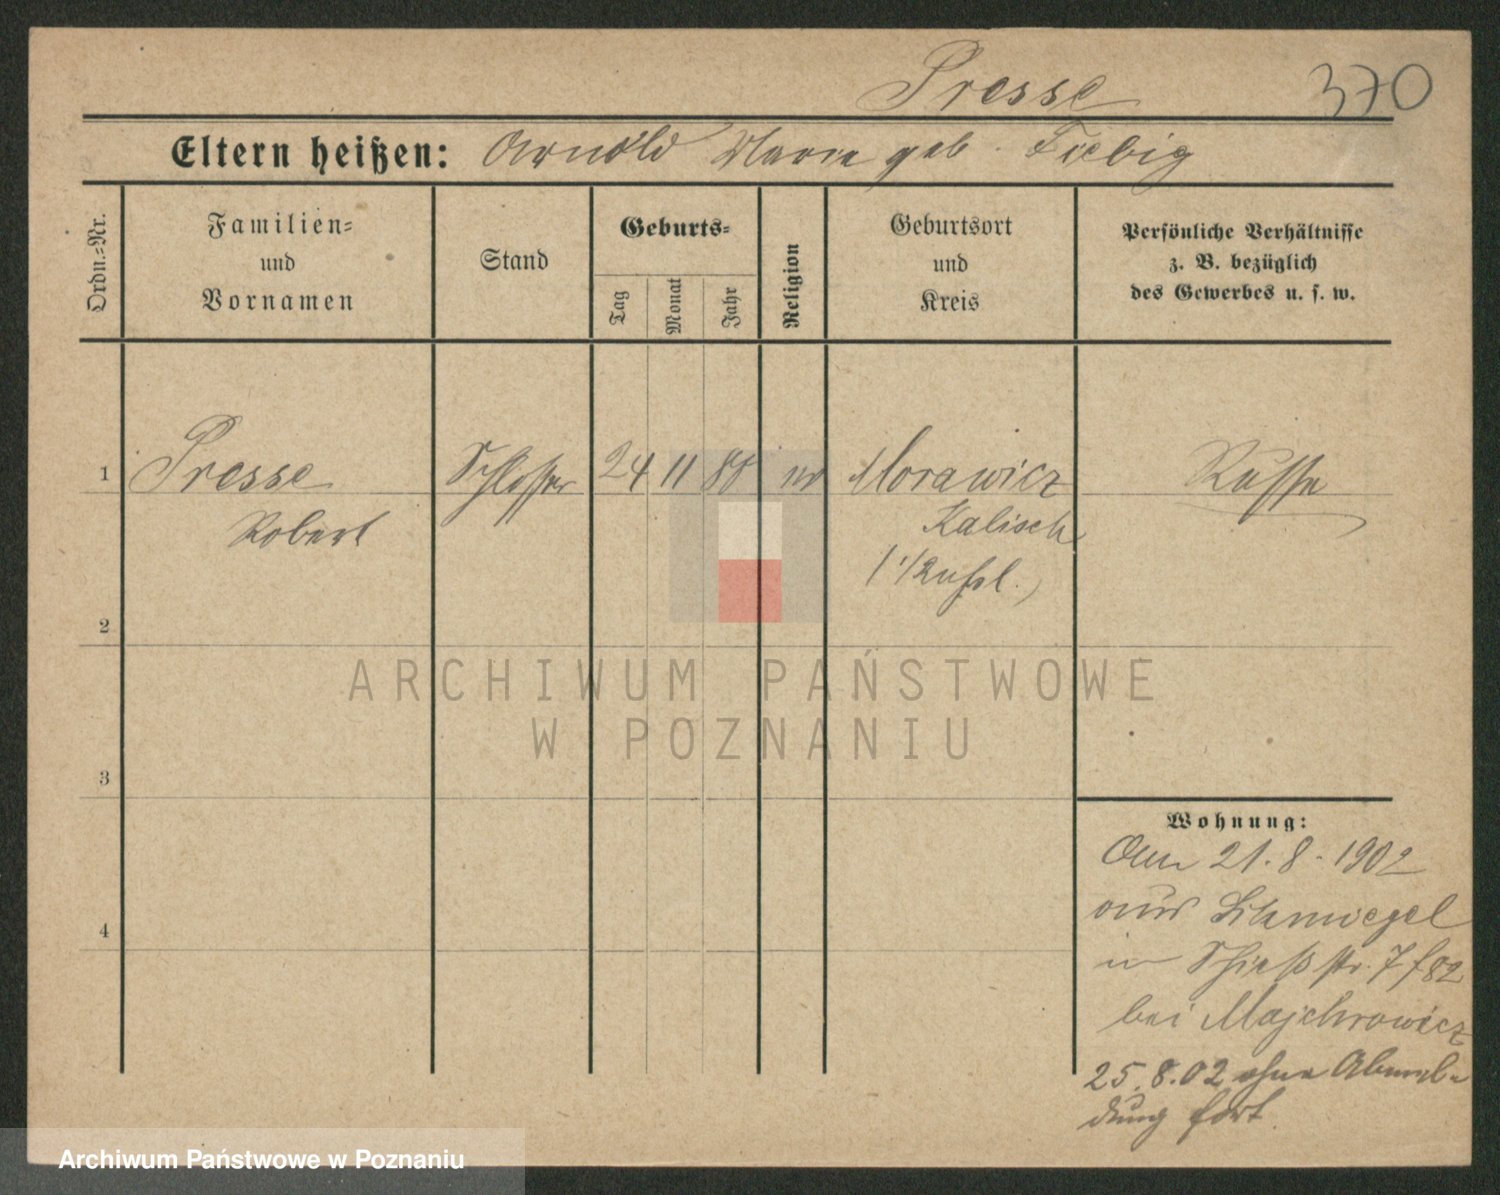 Presse 370
Eltern heißen: Arnold Marie geb. Fiebig
Ordn.=Nr.
Familien=
und
Vornamen
Stand
Geburts=
Tag
Monat
Jahr
Religion
Geburtsort
und
Kreis
Persönliche Verhältnisse
z. B. bezüglich
des Gewerbes u. s. w.
1 Presse Schlosser 24 11 88 Morawicz Russe
Robert Kalisch
2
3
4
Wohnung:
21.8.1902
aus
in Schießstr. 7
bei Majchrowicz
25.8.02 ohne Abmel-
dung fort.
ARCHIWUM PAŃSTWOWE
W POZNANIU
Archiwum Państwowe w Poznaniu